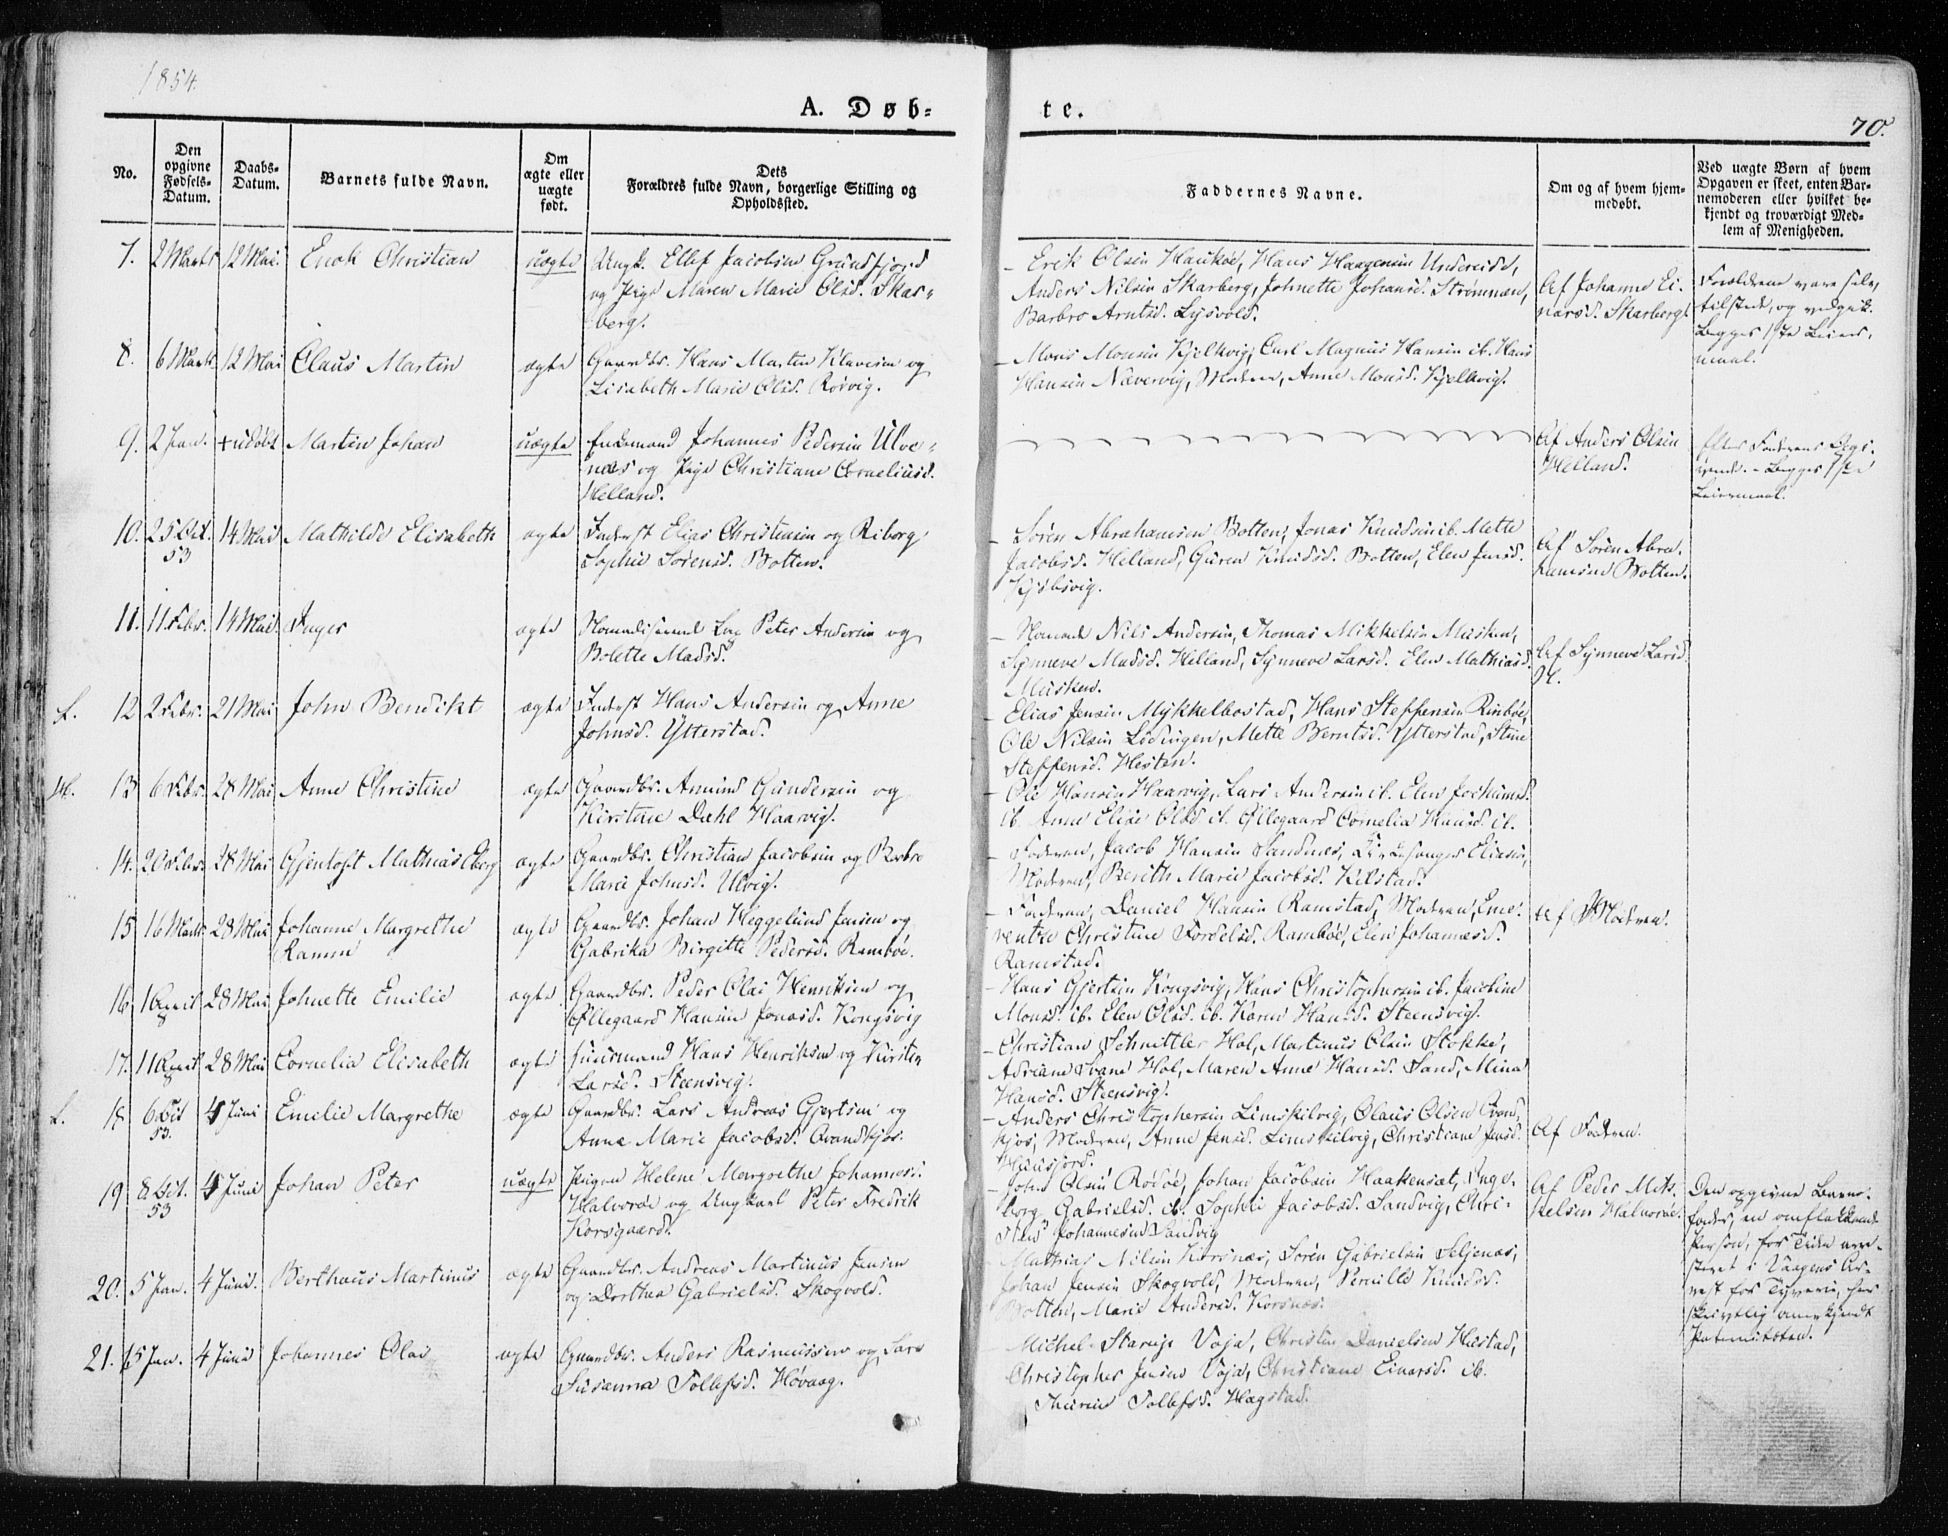 1854.
A. Døb=
te.
70.
No.
Den
opgivne
Fødsels-
Datum.
Daabs-
Datum.
Barnets fulde Navn.
Om
ægte eller
uægte
født.
Dets
Forældres fulde Navn, borgerlige Stilling og
Opholdssted.
Faddernes Navne.
Om og af hvem hjem-
medøbt.
Ved uægte Børn af hvem
Opgaven er skeet, enten Bar-
nemoderen eller hvilket be-
kjendt og troværdigt Med-
lem af Menigheden.
7. 2 Marts 12 Mai Enok Christian uægte Ungk. Ellef Jacobsen Grundfjord
og Pige Maren Marie Olsd. Skar-
berg.
Erik Olsen Haukøe, Hans Haagensen Undereidet,
Anders Nilsen Skarberg, Johnette Johansd. Strømnæs,
Barbro Arntsd. Lysvold.
Af Johanne Ei-
narsd. Skarberg.
Forældrene vare selv
tilstede, og vedgik
Begges 1ste Leier-
maal.
8. 6 Marts 12 Mai Claus Martin ægte Gaardbr. Hans Martin Klavesen og
Lisabeth Marie Olsd. Rørvig.
Mons Monsen Kjelkvig, Carl Magnus Hansen ib. Hans
Hansen Nævervig, Moderen, Anne Monsd. Kjelkvig.
9. 2 Jan. + udøbt Martin Johan uægte Enkemand Johannes Pedersen Ulve-
næs og Pige Christiane Corneliusd.
Helland.
Af Anders Olsen
Helland.
Efter Faderens Opgi-
vende. - Begges 1ste
Leiermaal.
10. 25 Oct. 53 14 Mai Mathilde Elisabeth ægte Inderst Elias Christiansen og Riborg
Sophie Sørensd. Botten.
Søren Abrahamsen Botten, Jonas Knudsen ib. Mette
Jacobsd. Helland, Guren Knudsd. Botten, Elen Jensd.
Af Søren Abra-
hamsen Botten.
11. 11 Febr. 14 Mai Inger ægte Nomadiserende Lap Peter Andersen og
Bolette Madsd.
Nomade Nils Andersen, Thomas Mikkelsen Musken,
Synneve Madsd. Helland, Synneve Larsd. Elen Mathiasd.
Musken.
Af Synneve Larsd.
L. 12 2 Febr. 21 Mai John Bendikt ægte Inderst Hans Andersen og Anne
Johnsd. Ytterstad.
Elias Jensen Mykkelbostad, Hans Steffensen Rinbøe,
Ole Nilsen Lødingen, Mette Berntsd. Ytterstad, Stine
Steffensd. Hesten.
13 6 Febr. 28 Mai Anne Christine ægte Gaardbr. Amund Gundersen og
Kirstine Dahl Haarvig.
Ole Hansen Haarvig, Lars Andersen ib. Elen Jochumsd.
ib. Anne Elise Olsd. ib. Øllegaard Cornelia Hansd. ib.
14. 20 Febr. 28 Mai Gjentoft Mathias Eberg ægte Gaardbr. Christian Jacobsen og Berbro
Marie Johnsd. Ulvig.
Faderen, Jacob Hansen Sandnes, Eliasen,
Moderen, Berith Marie Jacobsd. Kilstad.
15 16 Marts 28 Mai Johanne Margrethe
Ramm ægte Gaardbr. Johan Heggelund Jensen og
Gabrika Birgitte Pedersd. Rambøe.
Faderen, Daniel Hansen Ramstad, Moderen, Eme-
rentze Christine Fordelsd. Rambøe, Elen Johannesd.
Ramstad.
Af Moderen.
16 1 April 28 Mai Johnette Emilie ægte Gaardbr. Peder Olai Henriksen og
Øllegaard Hansine Jonasd. Kongsvig
Hans Gjertsen Kongsvig, Hans Christophersen ib. Jacobine
Monsd. ib. Elen Olsd. ib. Karen Hansd. Steensvig.
17. 11 April 28 Mai Cornelia Elisabeth ægte Huusmand Hans Henriksen og Kirsten
Larsd. Steensvig.
Christian Schnittler Hol, Martinus Olsen Stokke,
Adriane Svane Hol, Maren Anne Hansd. Sand, Mina
Hansd. Steensvig.
L. 18 6 Oct 53. 4 Juni Emelie Margrethe ægte Gaardbr. Lars Andreas Gjertsen og
Anne Marie Jacobsd. Qvandkjos.
Anders Christophersen Limskilvig, Olaus Olsen Qvand-
kjos, Moderen, Anne Jensd. Limskilvig, Christiane Jensd.
Af Faderen.
19 8 Oct. 53 4 Juni Johan Peter uægte Pigen Helene Margrethe Johannesd.
Halvorøe og Ungkarl Peter Fredrik
Korsgaard.
John Olsen Rødøe, Johan Jacobsen Haakenset, Inge-
borg Gabrielsd. ib. Sophie Jacobsd. Sandvig, Chri-
sten Johannesen Sandvig
Af Peder Mik-
kelsen Halvorøe.
Den opgivne Barne-
fader, en omflakkende
Person, for Tiden arre-
steret i Vaagens Ar-
rest for Tyveri, har
skriftlig anerkjendt
Paterniteten.
20. 5 Jan. 4 Juni. Berthaus Martinus ægte Gaardbr. Andreas Martinus Jensen
og Dorthea Gabrielsd. Skogvold.
Mathias Nilsen Korsnæs, Søren Gabrielsen Seljenæs,
Johan Jensen Skogvold, Moderen, Pernille Knudsd.
Botten, Maris Andersd. Korsnæs.
21. 15 Jan. 4 Juni Johannes Olai ægte Gaardbr. Anders Rasmussen og Sara
Susanna Tollefsd. Høvaag.
Michel Strøm Vaja, Christen Danielsen Hustad,
Christopher Jensen Vaja, Christiane Einarsd. ib.
Thurine Tollefsd. Hægstad.